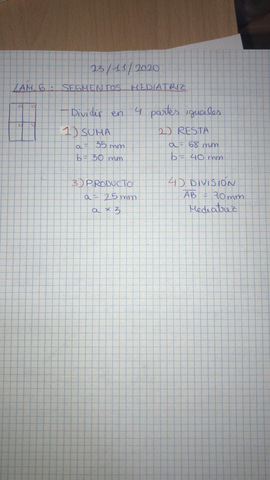 23/-11/2020
LAM.6: SEGMENTOS MEDIATRIZ
- Dividir en 4 partes iguales
1) SUMA
a = 35 mm
b = 30 mm
2) RESTA
a = 68 mm
b = 40 mm
3) PRODUCTO
a = 25 mm
a × 3
4) DIVISIÓN
AB = 70 mm
Mediatriz